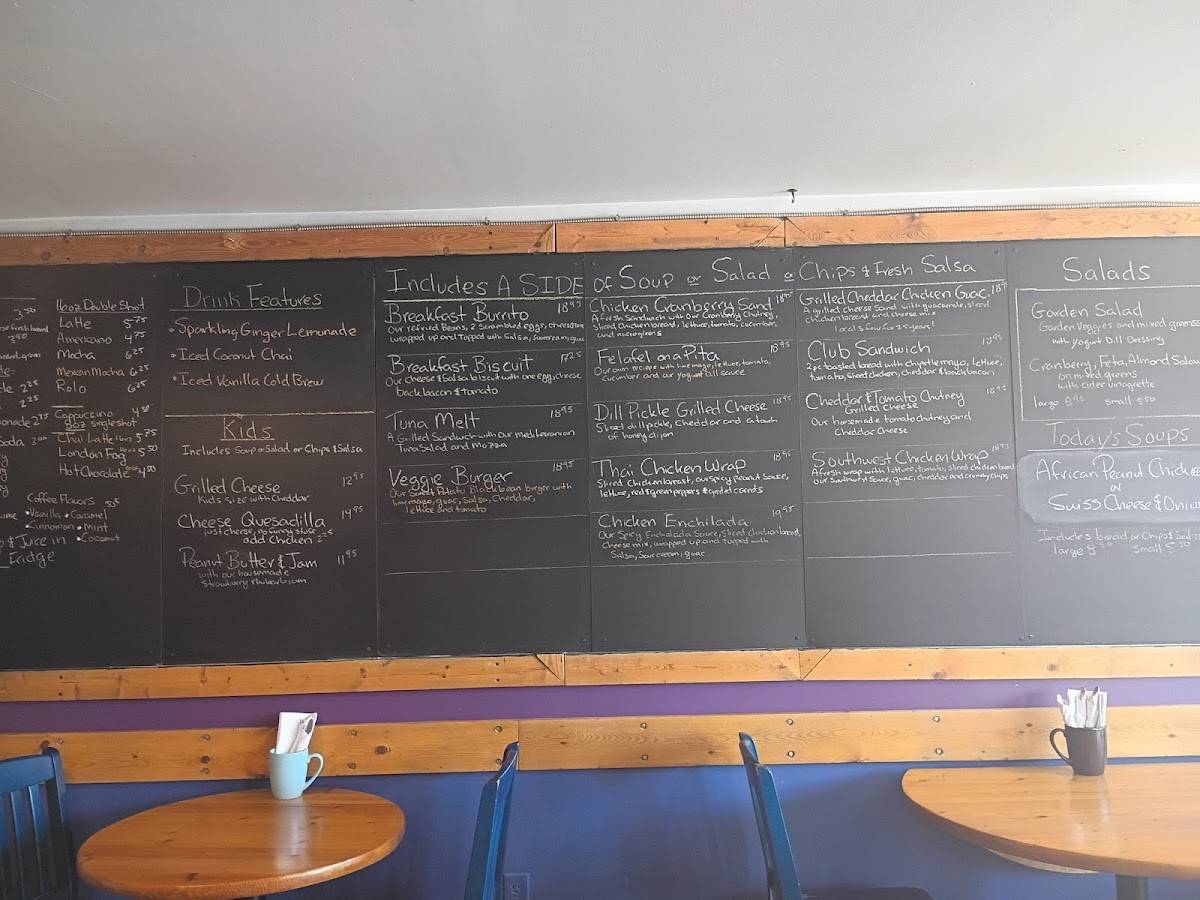 3.50
3.50
16oz Double Shot
Latte 5.75
Americano 4.75
Mocha 6.25
Mexican Mocha 6.25
Rolo 6.25
Cappuccino
8oz single shot
Chai Latte 16oz 5.75
London Fog 5.50
Hot Chocolate 4.00
Coffee Flavors
•Vanilla •Caramel
•Cinnamon •Mint
•Coconut
& Juice in
Fridge
Drink Features
•Sparkling Ginger Lemonade
•Iced Coconut Chai
•Iced Vanilla Cold Brew
Kids
Includes Soup or Salad or Chips & Salsa
Grilled Cheese 12.95
Kids size with Cheddar
Cheese Quesadilla 14.95
just cheese, no funny stuff
add Chicken
Peanut Butter & Jam 11.95
with our housemade
strawberry rhubarb jam
Includes A SIDE of Soup or Salad or Chips & Fresh Salsa
Breakfast Burrito 18.95
Our refried Beans, 2 scrambled eggs, cheese
wrapped up and topped with Salsa, Sourcream, guac
Breakfast Biscuit 17.25
Our cheese & Salsa biscuit with one egg, cheese
back bacon & tomato
Tuna Melt 18.95
A Grilled Sandwich with Our mediterranian
Tuna Salad and Mozza
Veggie Burger 18.95
Our Sweet Potato Black bean burger with
mayo, guac, Salsa, Cheddar,
lettuce and tomato
Chicken Cranberry Sand 18.95
A fresh Sandwich with Our Cranberry Chutney,
Sliced Chicken breast, lettuce, tomato, cucumber,
and microgreens
Felafel on a Pita 18.95
Our own recipe with mayo, lettuce, tomato,
Cucumber and our yogurt Dill sauce
Dill Pickle Grilled Cheese 18.95
Sliced dill pickle, Cheddar and a touch
of honey dijon
Thai Chicken Wrap 18.95
Sliced Chicken breast, our spicy peanut Sauce,
lettuce, red & green peppers & grated carrots
Chicken Enchilada 19.95
Our Spicy Enchalada Sauce, Sliced chicken breast,
Cheese mix, wrapped up and topped with
Salsa, Sourcream, guac
Grilled Cheddar Chicken Guac 18.95
A grilled cheese Sand with guacamole, sliced
chicken breast and cheese mix
local's fav for 25 years!
Club Sandwich 18.95
2pc toasted bread with mayo, lettuce,
tomato, sliced chicken, cheddar & back bacon
Cheddar & Tomato Chutney 18.95
Grilled Cheese
Our homemade tomato chutney and
Cheddar Cheese
Southwest Chicken Wrap 18.95
A fresh wrap with lettuce, tomato, sliced chicken breast
Our Southwest Sauce, guac, cheddar and crunchy chips
Salads
Garden Salad
Garden Veggies and mixed greens
with yogurt Dill Dressing
Cranberry, Feta, Almond Salad
on mixed greens
with cider vinagrette
large 8.95 small 5.50
Today's Soups
African Peanut Chicken
or
Swiss Cheese & Onion
Includes bread or Chips & Salsa
large 8.50 small 5.50